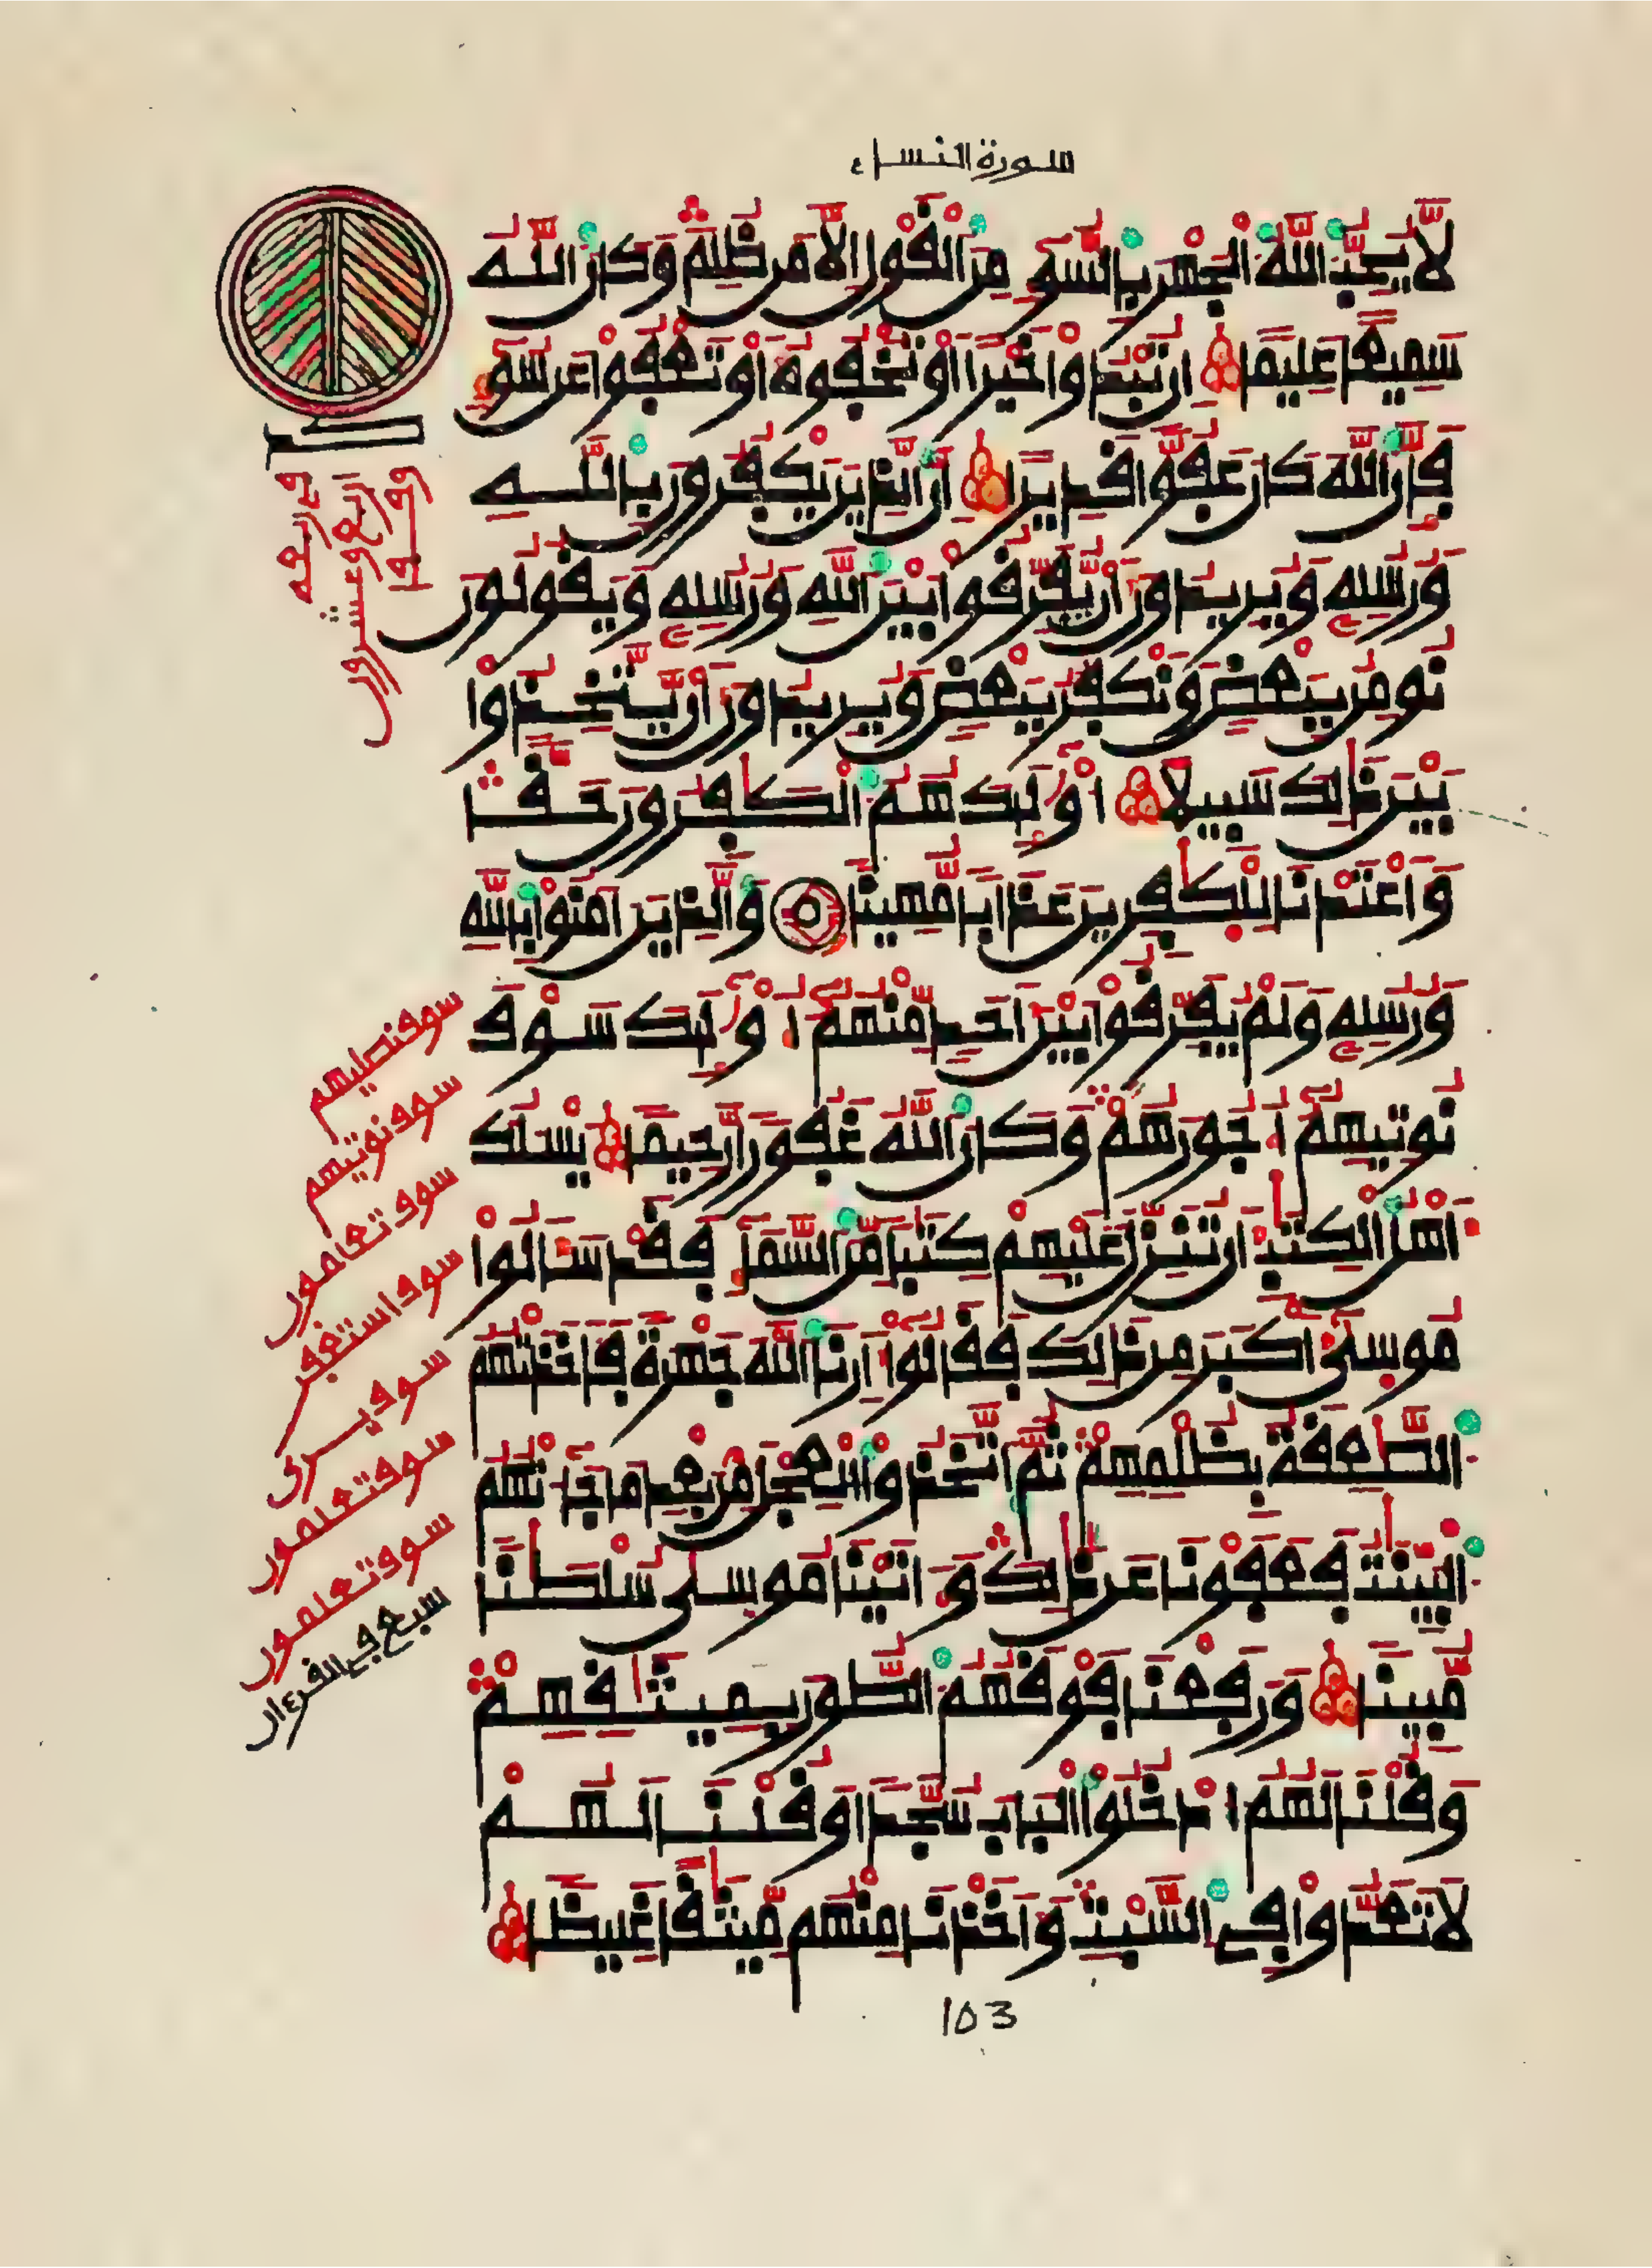 سورة النساء
لَّا يُحِبُّ اللَّهُ الْجَهْرَ بِالسُّوٓءِ مِنَ الْقَوْلِ إِلَّا مَن ظُلِمَ وَكَانَ اللَّهُ
سَمِيعًا عَلِيمًا إِن تُبْدُوا خَيْرًا أَوْ تُخْفُوهُ أَوْ تَعْفُوا عَن سُوٓءٍ
فَإِنَّ اللَّهَ كَانَ عَفُوًّا قَدِيرًا إِنَّ الَّذِينَ يَكْفُرُونَ بِاللَّهِ
وَرُسُلِهِ وَيُرِيدُونَ أَن يُفَرِّقُوا بَيْنَ اللَّهِ وَرُسُلِهِ وَيَقُولُونَ
نُومِنُ بِبَعْضٍ وَنَكْفُرُ بِبَعْضٍ وَيُرِيدُونَ أَن يَتَّخِذُوا
بَيْنَ ذَٰلِكَ سَبِيلًا أُوْلَٰٓئِكَ هُمُ الْكَٰفِرُونَ حَقًّا
وَأَعْتَدْنَا لِلْكَٰفِرِينَ عَذَابًا مُّهِينًا وَالَّذِينَ ءَامَنُوا بِاللَّهِ
وَرُسُلِهِ وَلَمْ يُفَرِّقُوا بَيْنَ أَحَدٍ مِّنْهُمُۥٓ أُوْلَٰٓئِكَ سَوْفَ
نُوتِيهِمُۥٓ أُجُورَهُمْ وَكَانَ اللَّهُ غَفُورًا رَّحِيمًا يَسْـَٔلُكَ
أَهْلُ الْكِتَٰبِ أَن تُنَزِّلَ عَلَيْهِمْ كِتَٰبًا مِّنَ السَّمَآءِ فَقَدْ سَأَلُوا
مُوسَىٰٓ أَكْبَرَ مِن ذَٰلِكَ فَقَالُوٓا أَرِنَا اللَّهَ جَهْرَةً فَأَخَذَتْهُمُ
الصَّٰعِقَةُ بِظُلْمِهِمْ ثُمَّ اتَّخَذُوا الْعِجْلَ مِن بَعْدِ مَا جَآءَتْهُمُ
الْبَيِّنَٰتُ فَعَفَوْنَا عَن ذَٰلِكَ وَءَاتَيْنَا مُوسَىٰ سُلْطَٰنًا
مُّبِينًا وَرَفَعْنَا فَوْقَهُمُ الطُّورَ بِمِيثَٰقِهِمْ
وَقُلْنَا لَهُمُ ادْخُلُوا الْبَابَ سُجَّدًا وَقُلْنَا لَهُمْ
لَا تَعَدُّوا فِي السَّبْتِ وَأَخَذْنَا مِنْهُم مِّيثَٰقًا غَلِيظًا
كد
اربع وعشرون
سوف نصليهم
سوف نوتيهم
سوف تعلمون
سوف استغفر
سوف يرى
سوف تعلمون
سوف تعلمون
سبع في القرءان
103